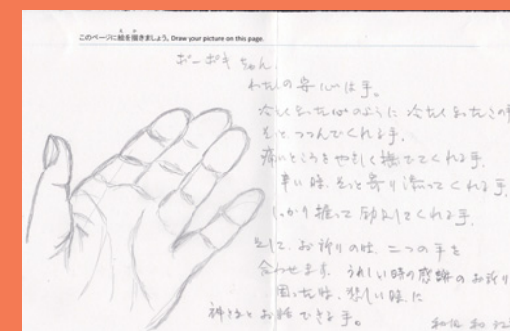 このページに絵を描きましょう。Draw your picture on this page.
ちゃん、
わたしの安心は手。
冷たくなった のように 冷たくなったこの手
そっと つつんでくれる手。
痛いところをやさしく撫でてくれる手。
辛い時、そっと寄り添ってくれる手。
しっかり握って してくれる手。
そして、お祈りの時、二つの手を
合わせます。うれしい時の感謝のお祈り
困った時、悲しい時に
神さまと お話できる手。